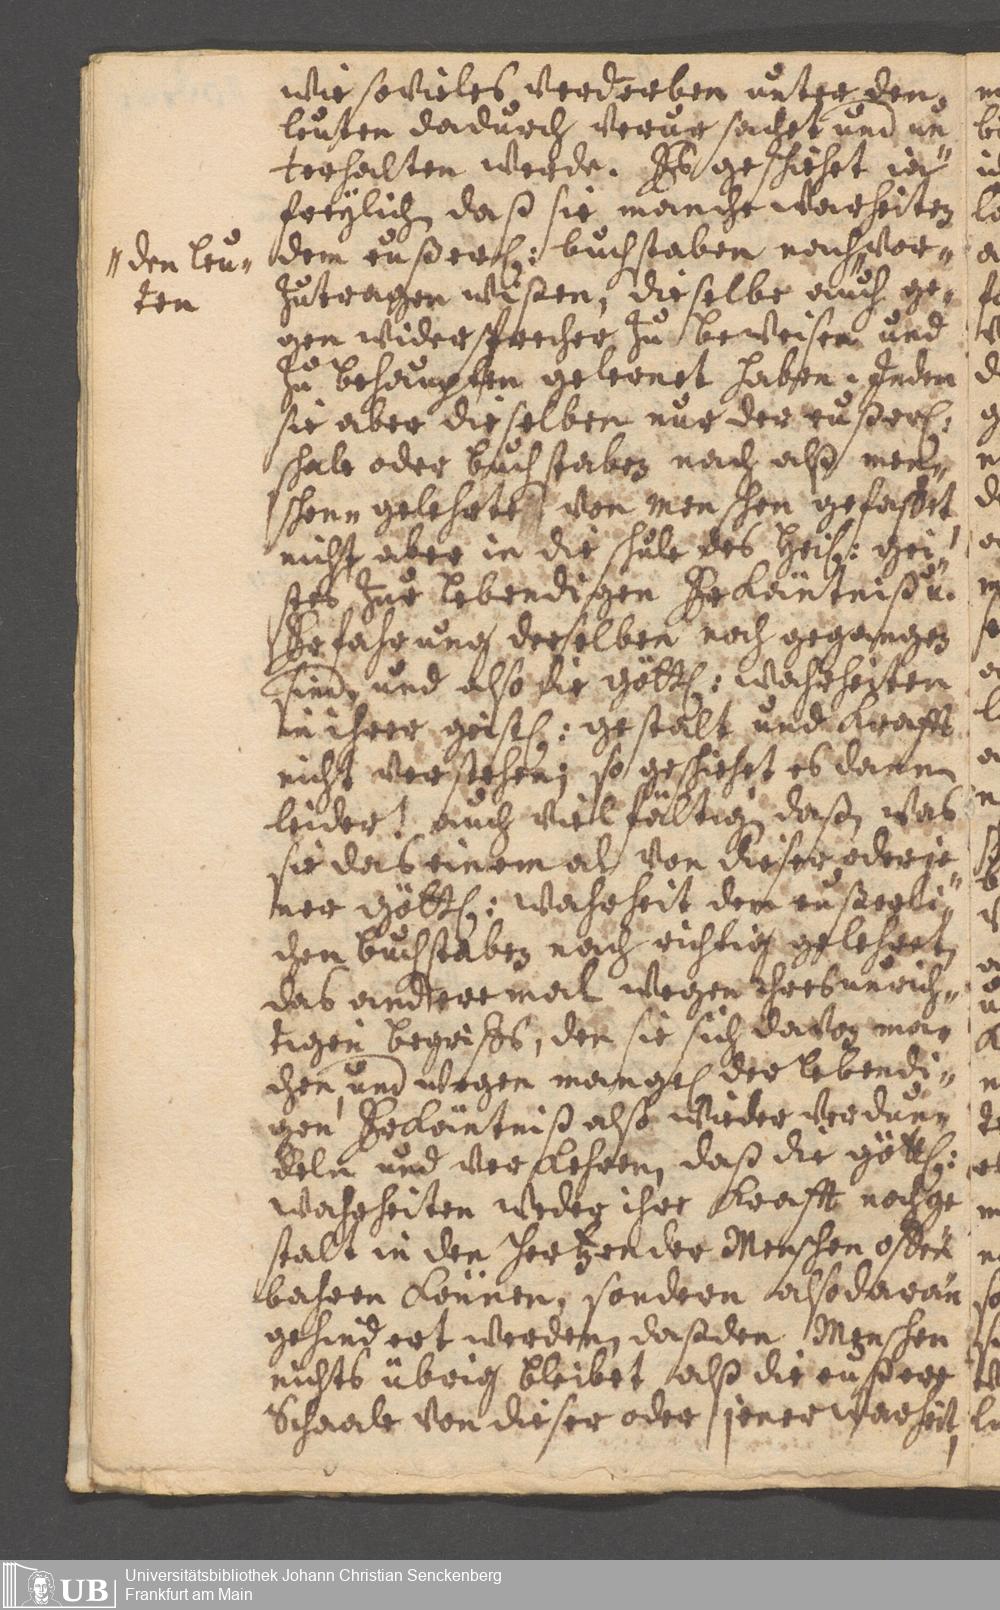 wie so vieles verderben unter den
leuten dadurch verursachet und un
terhalten werde. Es geschiehet ja
freÿlich, daß sie manche warheiten
dem eußerl: buchstaben nach vor-
" den leu-
ten
zutragen wißen, dieselbe auch ge-
gen widersprecher zu beweisen und
zu behaupten gelernet haben. Indem
sie aber dieselben nur der eußerl:
schale oder buchstaben nach alß men-
schen-gelehrte von menschen gefaßet
nicht aber in die schule des heil: gei-
stes zur lebendigen Erkäntniß u.
Erfahrung derselben noch gegangen
sind, und also die göttl: wahrheiten
in ihrer geistl: gestalt und krafft
nicht verstehen; so geschiehet es dann
leider! auch vielfältig, daß, was
sie das eine mal von dieser oder je-
ner göttl: wahrheit dem eußerli-
chen buchstaben nach richtig gelehret,
das andere mal wegen ihres unrich-
tigen begriffs, den sie sich davon ma-
chen, und wegen mangel der lebendi-
gen Erkäntniß also wieder verdun-
keln und verkehren, daß die göttl:
wahrheiten weder ihre krafft noch ge
stalt in den hertzen der Menschen offen
bahren können, sondern also daran
gehindert werden, daß den Menschen
nichts übrig bleibet alß die eußere
Schaale von dieser oder jener warheit,
UB
Universitätsbibliothek Johann Christian Senckenberg
Frankfurt am Main